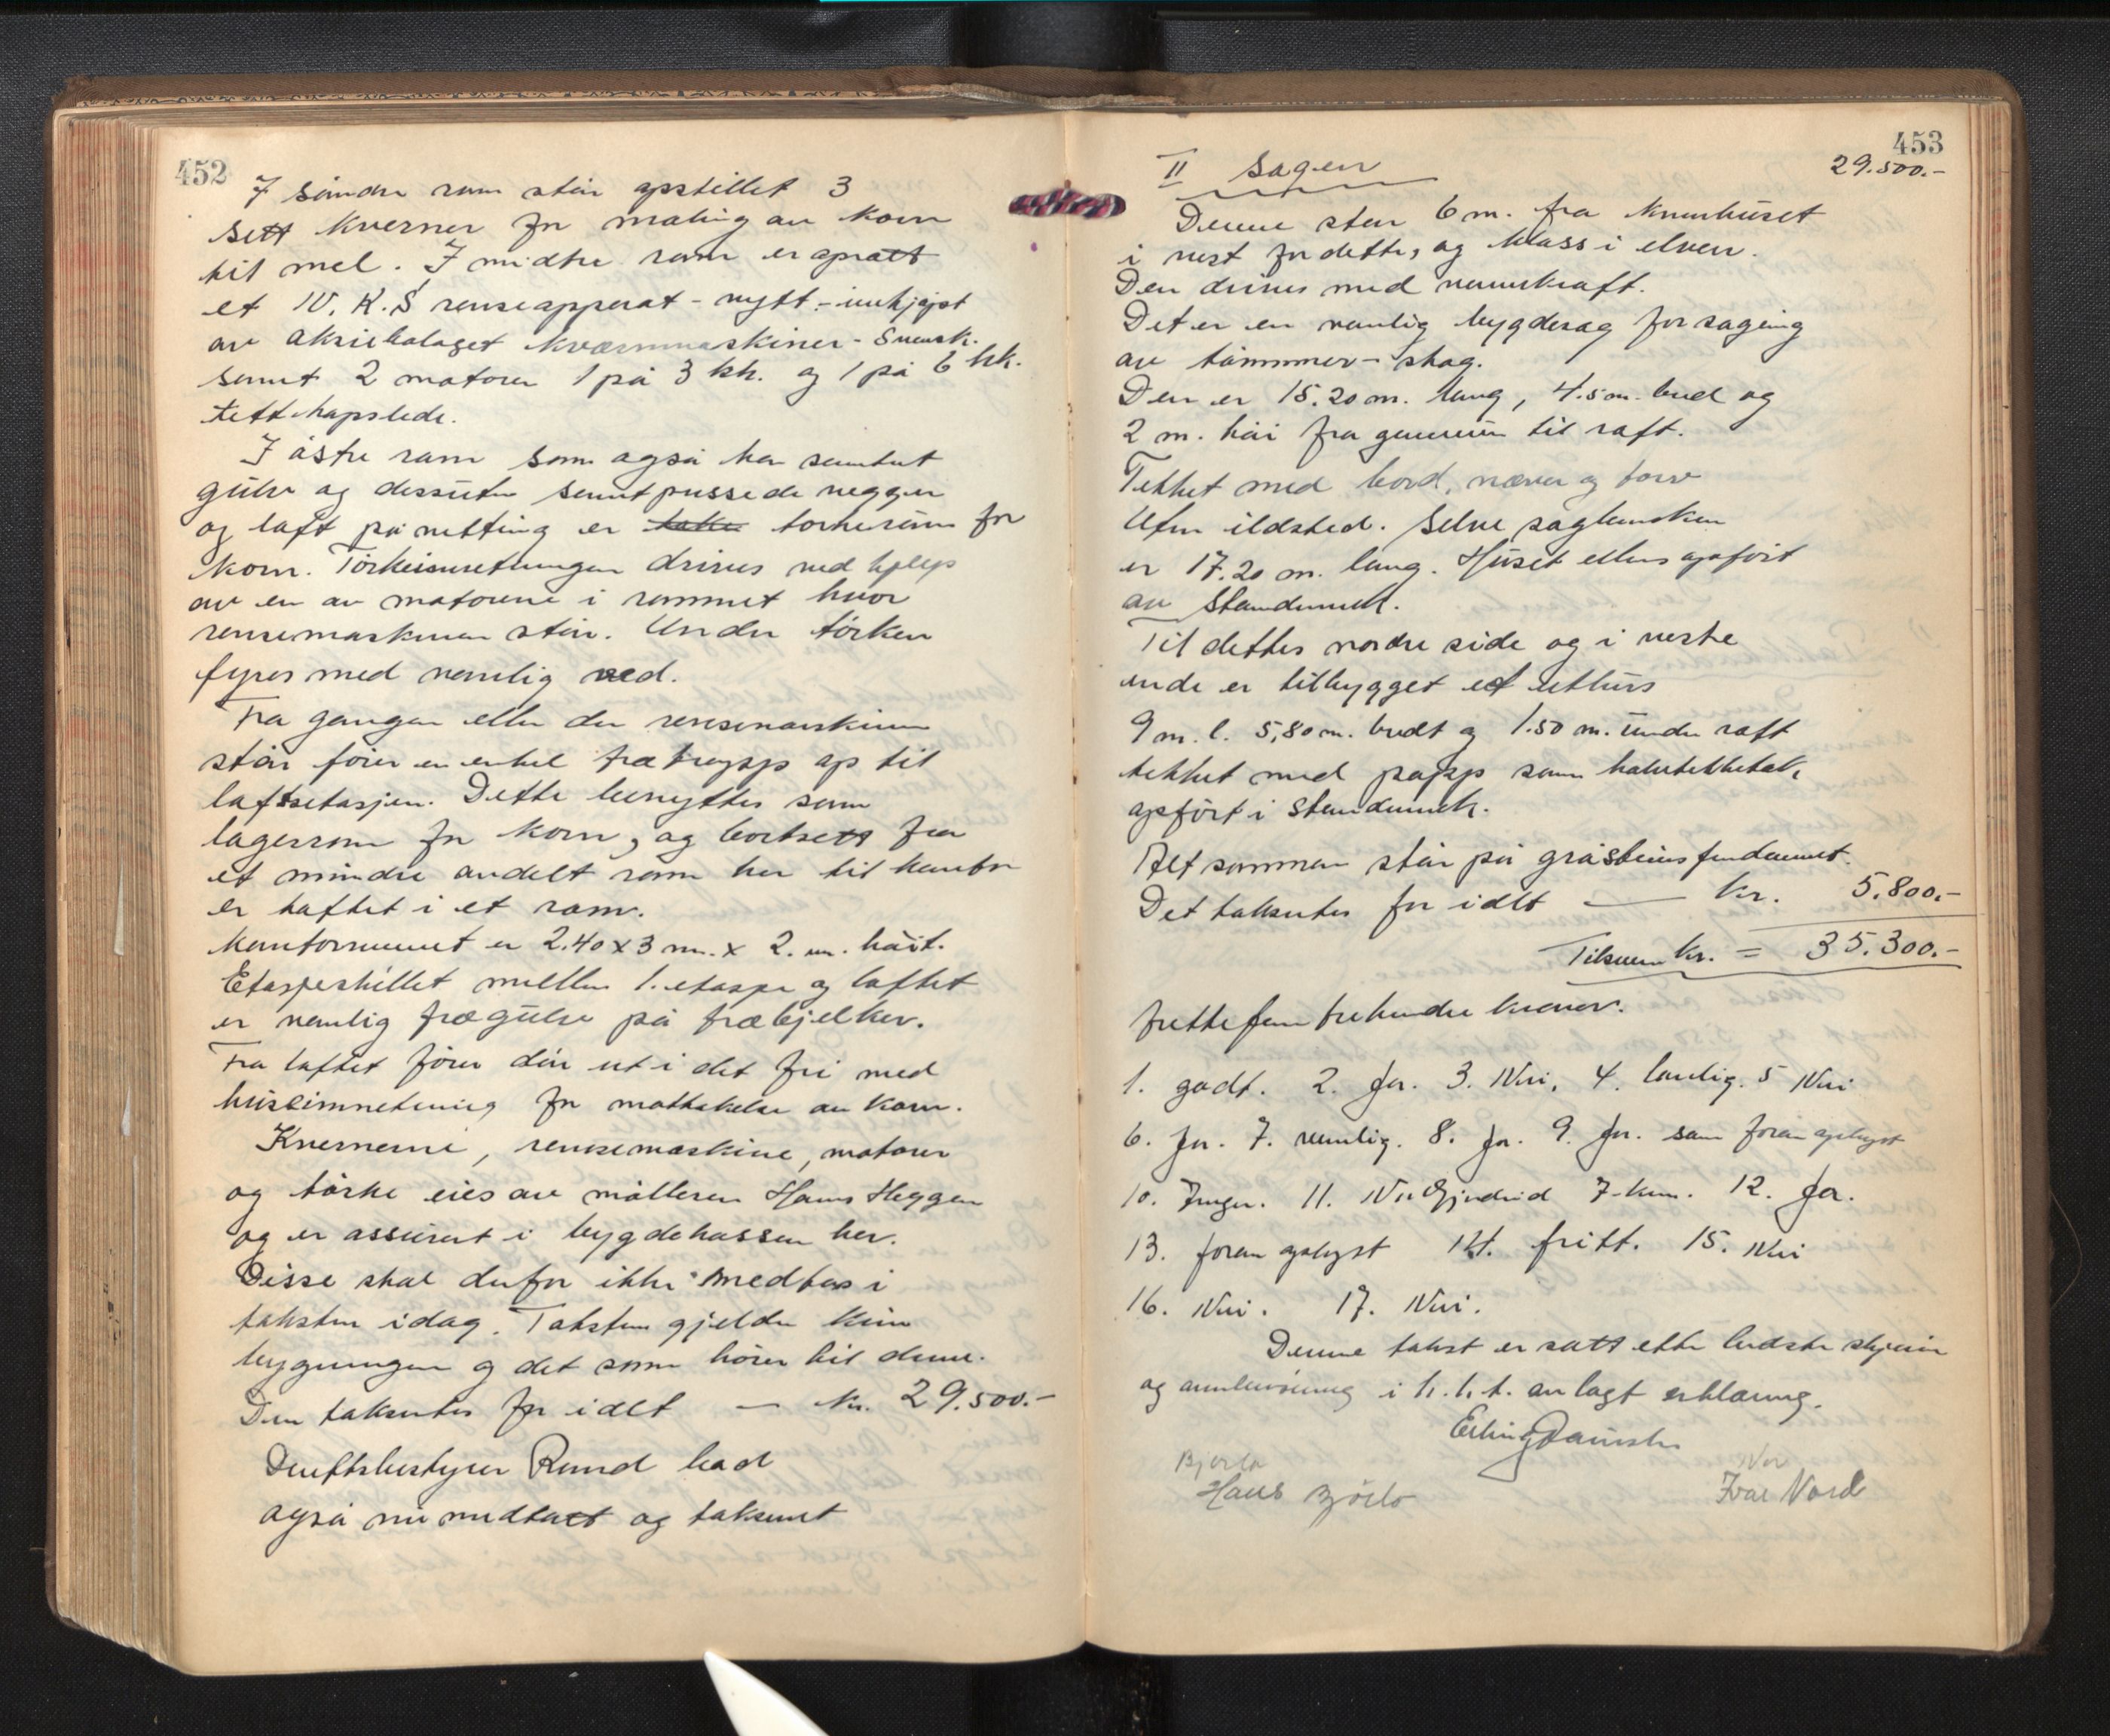 452
I søndre rom står opstillet 3
sett kverner for maling av korn
til mel. I midtre rom er opsatt
et N. K. S renseapparat - nytt - innkjøpt
av aksiebolaget kvarnmaskiner - Svensk.
samt 2 motorer 1 på 3 hk. og 1 på 6 hk.
tett kapslede.
I østre rom som også har sementert
gulv og dessuten sementpussede vegger
og loft på netting er torkerum for
korn. Törkeinnretningen drives ved hjelp
av en av motorene i rommet hvor
rensemaskinen står. Under törken
fyres med vanlig ved.
Fra gangen eller der rensemaskinen
står förer en enkel trætrapp op til
loftsetasjen. Dette benyttes som
lagerrom for korn, og bortsett fra
et mindre avdelt rom her til kontor
er loftet i et rom.
Kontorrummet er 2.40 x 3 m. x 2. m. høit.
Etasjeskillet mellem 1. etasje og loftet
er vanlig trægulv på træbjelker.
Fra loftet förer dör ut i det fri med
heiseinnretning for mottakelse av korn.
Kvernerne, rensemaskine, motorer
og törke eies av mölleren Hans Heggen
og er assurert i bygdekassen her.
Disse skal derfor ikke medtas i
taksten idag. Taksten gjelder kun
bygningen og det som hörer til denne.
Den takseres for idet — Kr. 29.500.-
Driftsbestyrer Rund bad
også nu medtatt og taksert
453
29.500.-
II Sagen
Denne står 6 m. fra kvernhuset
i vest for dette, og klass i elven.
Den drives med vannkraft.
Det er en vanlig bygdesag for saging
av tömmer - skog.
Den er 15.20 m. lang, 4.5 m. bred og
2 m. höi fra grunnen til raft.
Tekket med bord, næver og torv
Uten ildsted. Selve sagbenken
er 17.20 m. lang. Huset ellers opfört
av stenderverk.
Til dettes nordre side og i vestre
ende er tilbygget et uthus
9 m. l. 5,80 m. bredt og 1.50 m. under raft
tekket med papp som halvtekketak,
opfört i stenderverk.
Alt sammen står på gråsteinsfundament.
Det takseres for idet — Kr. 5.800.-
Tilsammen kr. = 35.300.-
trettefem trehundre kroner.
1. godt. 2. Ja. 3. Nei, 4. lovlig. 5 Nei
6. Ja. 7. vanlig. 8. Ja. 9. Ja. som foran oplyst
10. Ingen. 11. 7 km. 12. Ja.
13. foran oplyst 14. fritt. 15. Nei
16. Nei. 17. Nei.
Denne takst er satt efter bedste skjönn
og overbevisning i h. h. t. avlagt erklæring.
Bjørlo
Hans Bjørlo
Nor
Ivar Nord